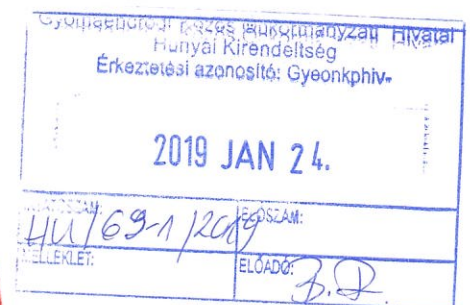 Gyomaendrődi Közös Önkormányzati Hivatal
Hunyai Kirendeltség
Érkeztetési azonosító: Gyeonkphiv-
2019 JAN 24.
IKTATÓSZÁM: ELŐSZÁM:
HU/69-1/2019
MELLÉKLET: ELŐADÓ:
B.R.